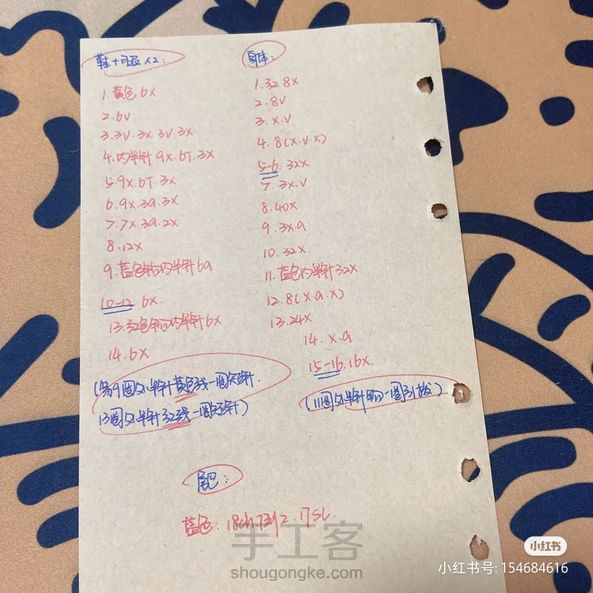 鞋+脚x2:
1.黄色6x
2.6v
3.3v.3x.3v.3x
4.内半针9x.6T.3x
5.9x.6T.3x
6.9x.3a.3x
7.7x.3a.2x
8.12x
9.蓝色钩内半针6a
10-12 6x.
13.红色钩内半针6x
14.6x
(鞋9圈外半针黄色线一圈短针.
13圈外半针红线一圈短针)
身体:
1.红8x
2.8v
3.x.v
4.8(x.v.x)
5-6.32x
7.3x.v
8.40x
9.3x.a
10.32x.
11.蓝色内半针32x
12.8(x.a.x)
13.24x
14.x.a
15-16.16x.
(11圈外半针钩一圈引拔)
尾巴:
蓝色:18ch.
17sl.
手工客
shougongke.com
小红书
小红书号: 154684616